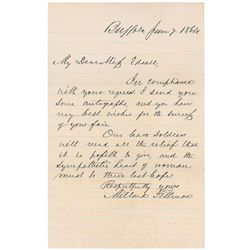 Buffalo June 7 1864
My Dear Miss Edsall,
In compliance
with your request I send you
some autographs, and you have
my best wishes for the success
of your fair.
Our brave soldiers
will need all the relief that
it is possible to give, and the
sympathetic heart of woman
must be their last hope.
Respectfully yours
Millard Fillmore